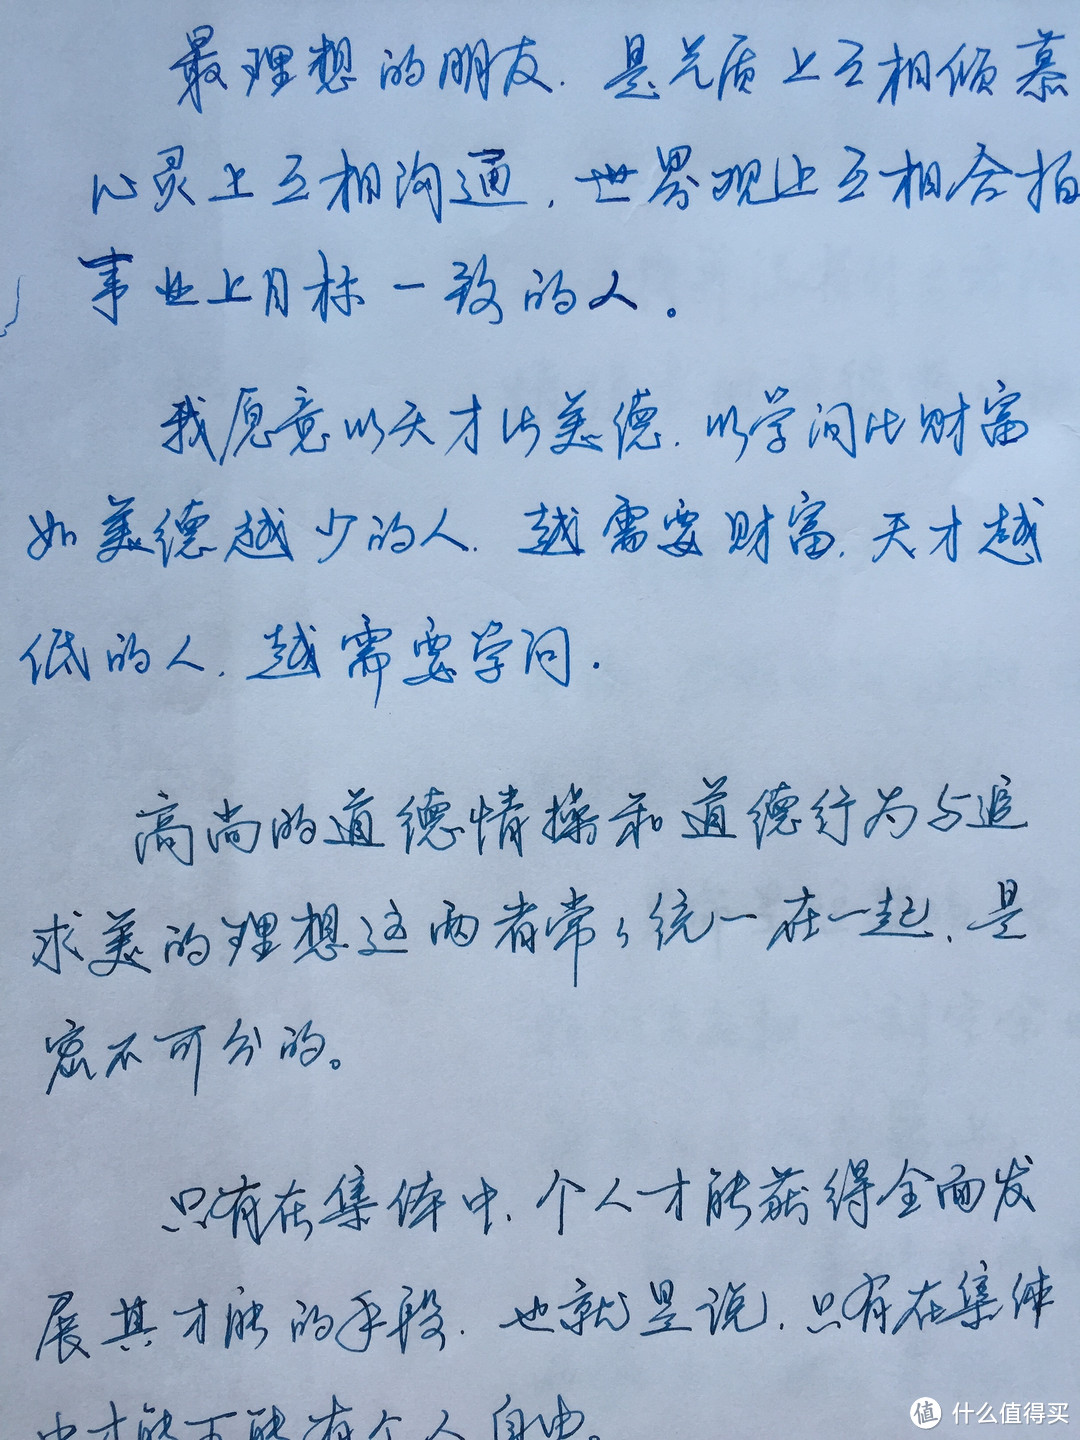 最理想的朋友.是气质上互相倾慕
心灵上互相沟通,世界观上互相合拍
事业上目标一致的人。
我愿意以天才比美德.以学问比财富
如美德越少的人.越需要财富.天才越
低的人.越需要学问.
高尚的道德情操和道德行为与追
求美的理想这两者常々统一在一起.是
密不可分的。
只有在集体中.个人才能获得全面发
展其才能的手段.也就是说.只有在集体
中才能可能有个人自由。
值 什么值得买